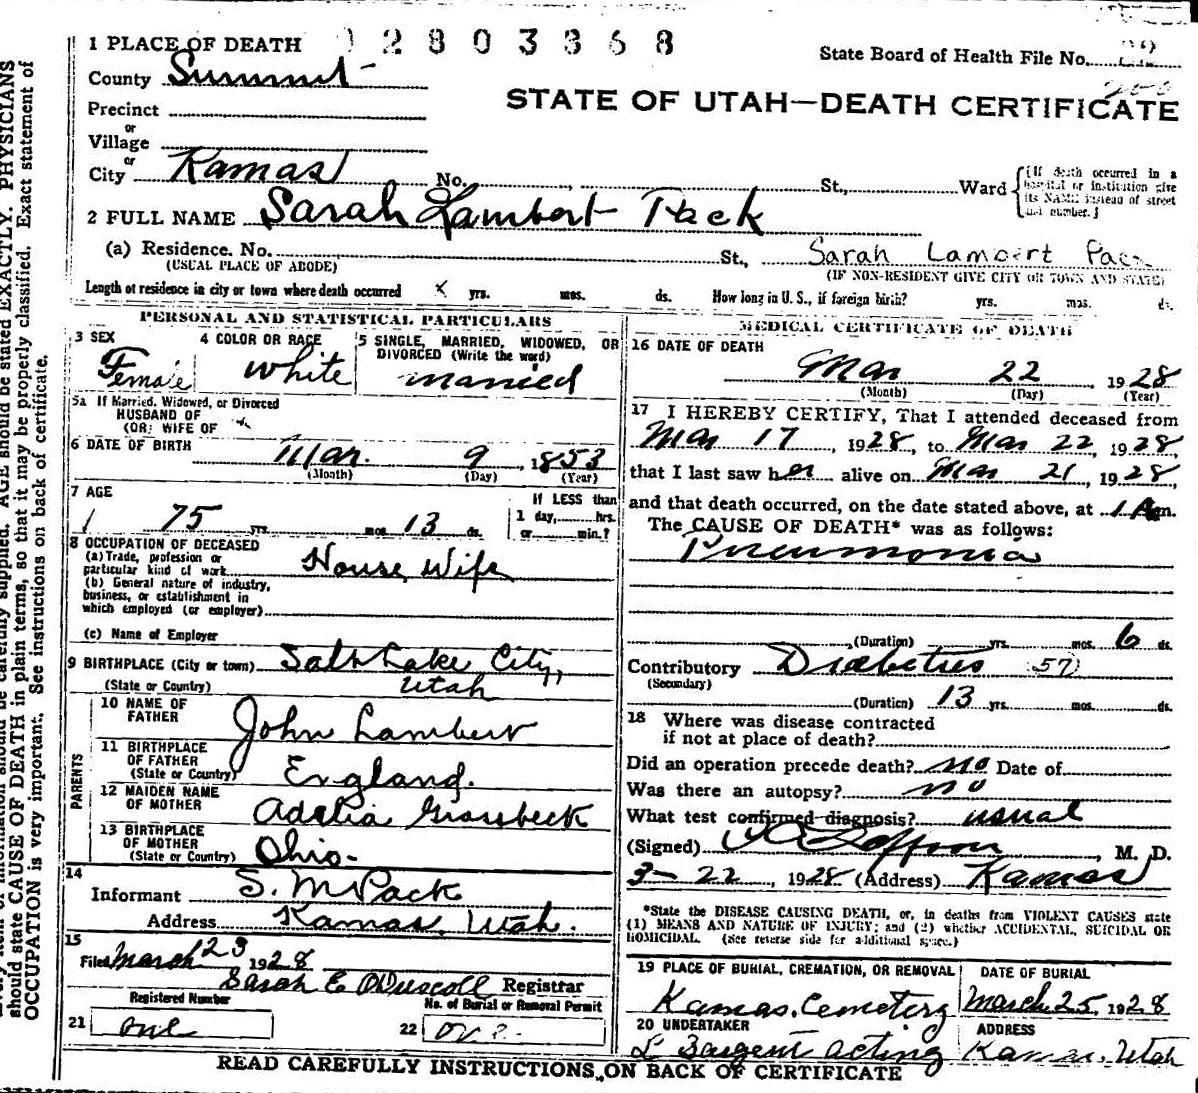 1 PLACE OF DEATH
2803368
State Board of Health File No.
County Summit
STATE OF UTAH—DEATH CERTIFICATE
Precinct
or
Village
or
City Kamas No. , St., Ward
{If death occurred in a hospital or institution give its NAME instead of street and number.}
2 FULL NAME Sarah Lambert Pack
(a) Residence. No. St., Sarah Lambert Pack
(USUAL PLACE OF ABODE) (IF NON-RESIDENT GIVE CITY OR TOWN AND STATE)
Length of residence in city or town where death occurred x yrs. mos. ds. How long in U. S., if foreign birth? yrs. mos. ds.
PERSONAL AND STATISTICAL PARTICULARS
3 SEX
Female
4 COLOR OR RACE
white
5 SINGLE, MARRIED, WIDOWED, OR
DIVORCED (Write the word)
married
5a If Married, Widowed, or Divorced
HUSBAND OF
(OR) WIFE OF
6 DATE OF BIRTH
Mar. 9, 1853
(Month) (Day) (Year)
7 AGE
75 yrs. mos. 13 ds.
If LESS than
1 day, hrs.
or min.?
8 OCCUPATION OF DECEASED
(a) Trade, profession or
particular kind of work House Wife
(b) General nature of industry,
business, or establishment in
which employed (or employer)
(c) Name of Employer
9 BIRTHPLACE (City or town) Salt Lake City,
(State or Country) Utah
PARENTS
10 NAME OF
FATHER John Lambert
11 BIRTHPLACE
OF FATHER
(State or Country) England.
12 MAIDEN NAME
OF MOTHER Adelia Groesbeck
13 BIRTHPLACE
OF MOTHER
(State or Country) Ohio-
14
Informant S. M Pack
Address Kamas, Utah.
15
Filed March 23 1928
Sarah E O'Driscoll Registrar
Registered Number No. of Burial or Removal Permit
21 one 22 one
MEDICAL CERTIFICATE OF DEATH
16 DATE OF DEATH
Mar 22, 1928
(Month) (Day) (Year)
17 I HEREBY CERTIFY, That I attended deceased from
Mar 17, 1928, to Mar 22, 1928,
that I last saw her alive on Mar 21, 1928,
and that death occurred, on the date stated above, at 1 A m.
The CAUSE OF DEATH* was as follows:
Pneumonia
(Duration) yrs. mos. 6 ds.
Contributory Diabetus 57)
(Secondary)
(Duration) 13 yrs. mos. ds.
18 Where was disease contracted
if not at place of death?
Did an operation precede death? no Date of
Was there an autopsy? no
What test confirmed diagnosis? usual
(Signed) , M. D.
3-22, 1928 (Address) Kamas
*State the DISEASE CAUSING DEATH, or, in deaths from VIOLENT CAUSES state
(1) MEANS AND NATURE OF INJURY; and (2) whether ACCIDENTAL, SUICIDAL OR
HOMICIDAL. (See reverse side for additional space.)
19 PLACE OF BURIAL, CREMATION, OR REMOVAL
Kamas. Cemetery
DATE OF BURIAL
March 25, 1928
20 UNDERTAKER
L Sargent acting
ADDRESS
Kamas. Utah
READ CAREFULLY INSTRUCTIONS ON BACK OF CERTIFICATE
supplied. AGE should be stated EXACTLY. PHYSICIANS
should state CAUSE OF DEATH in plain terms, so that it may be properly classified. Exact statement of
OCCUPATION is very important. See instructions on back of certificate.